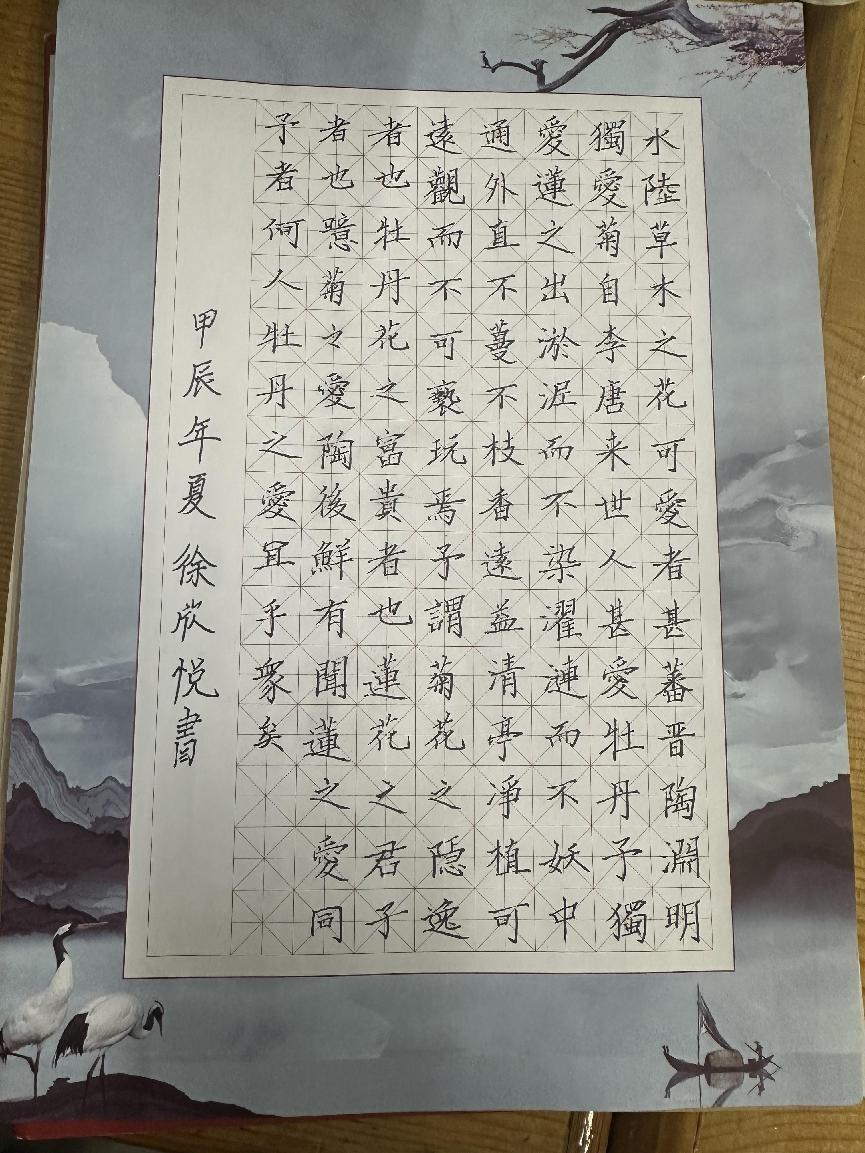 水陸草木之花可愛者甚蕃晋陶淵明
獨愛菊自李唐来世人甚愛牡丹予獨
愛蓮之出淤泥而不染濯漣而不妖中
通外直不蔓不枝香遠益清亭淨植可
遠觀而不可褻玩焉予謂菊花之隐逸
者也牡丹花之富貴者也蓮花之君子
者也噫菊之愛陶後鮮有聞蓮之愛同
予者何人牡丹之愛宜乎衆矣
甲辰年夏徐欣悦書